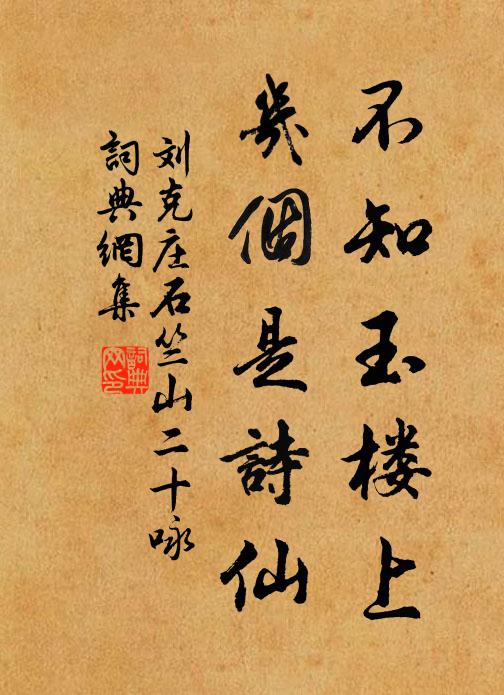 不知玉楼上
幾個是詩仙
刘克庄石竺山二十咏
詞典網集
詞典网印